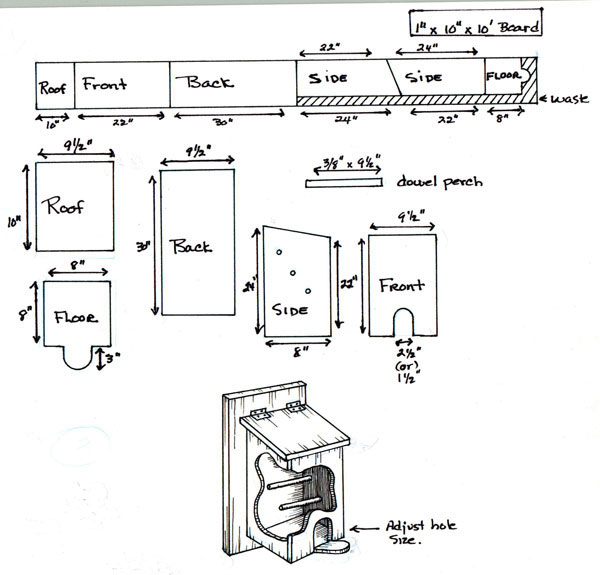 1" x 10" x 10' Board
22" 24"
Roof Front Back SIDE SIDE FLOOR
10" 22" 30" 24" 22" 8" waste
9 1/2" 9 1/2" 3/8" x 9 1/2"
dowel perch
9 1/2"
10" Roof
30" Back
24" SIDE 22"
22" Front
8"
8" FLOOR
8"
3"
2 1/2"
(or)
1 1/2"
Adjust hole
Size.